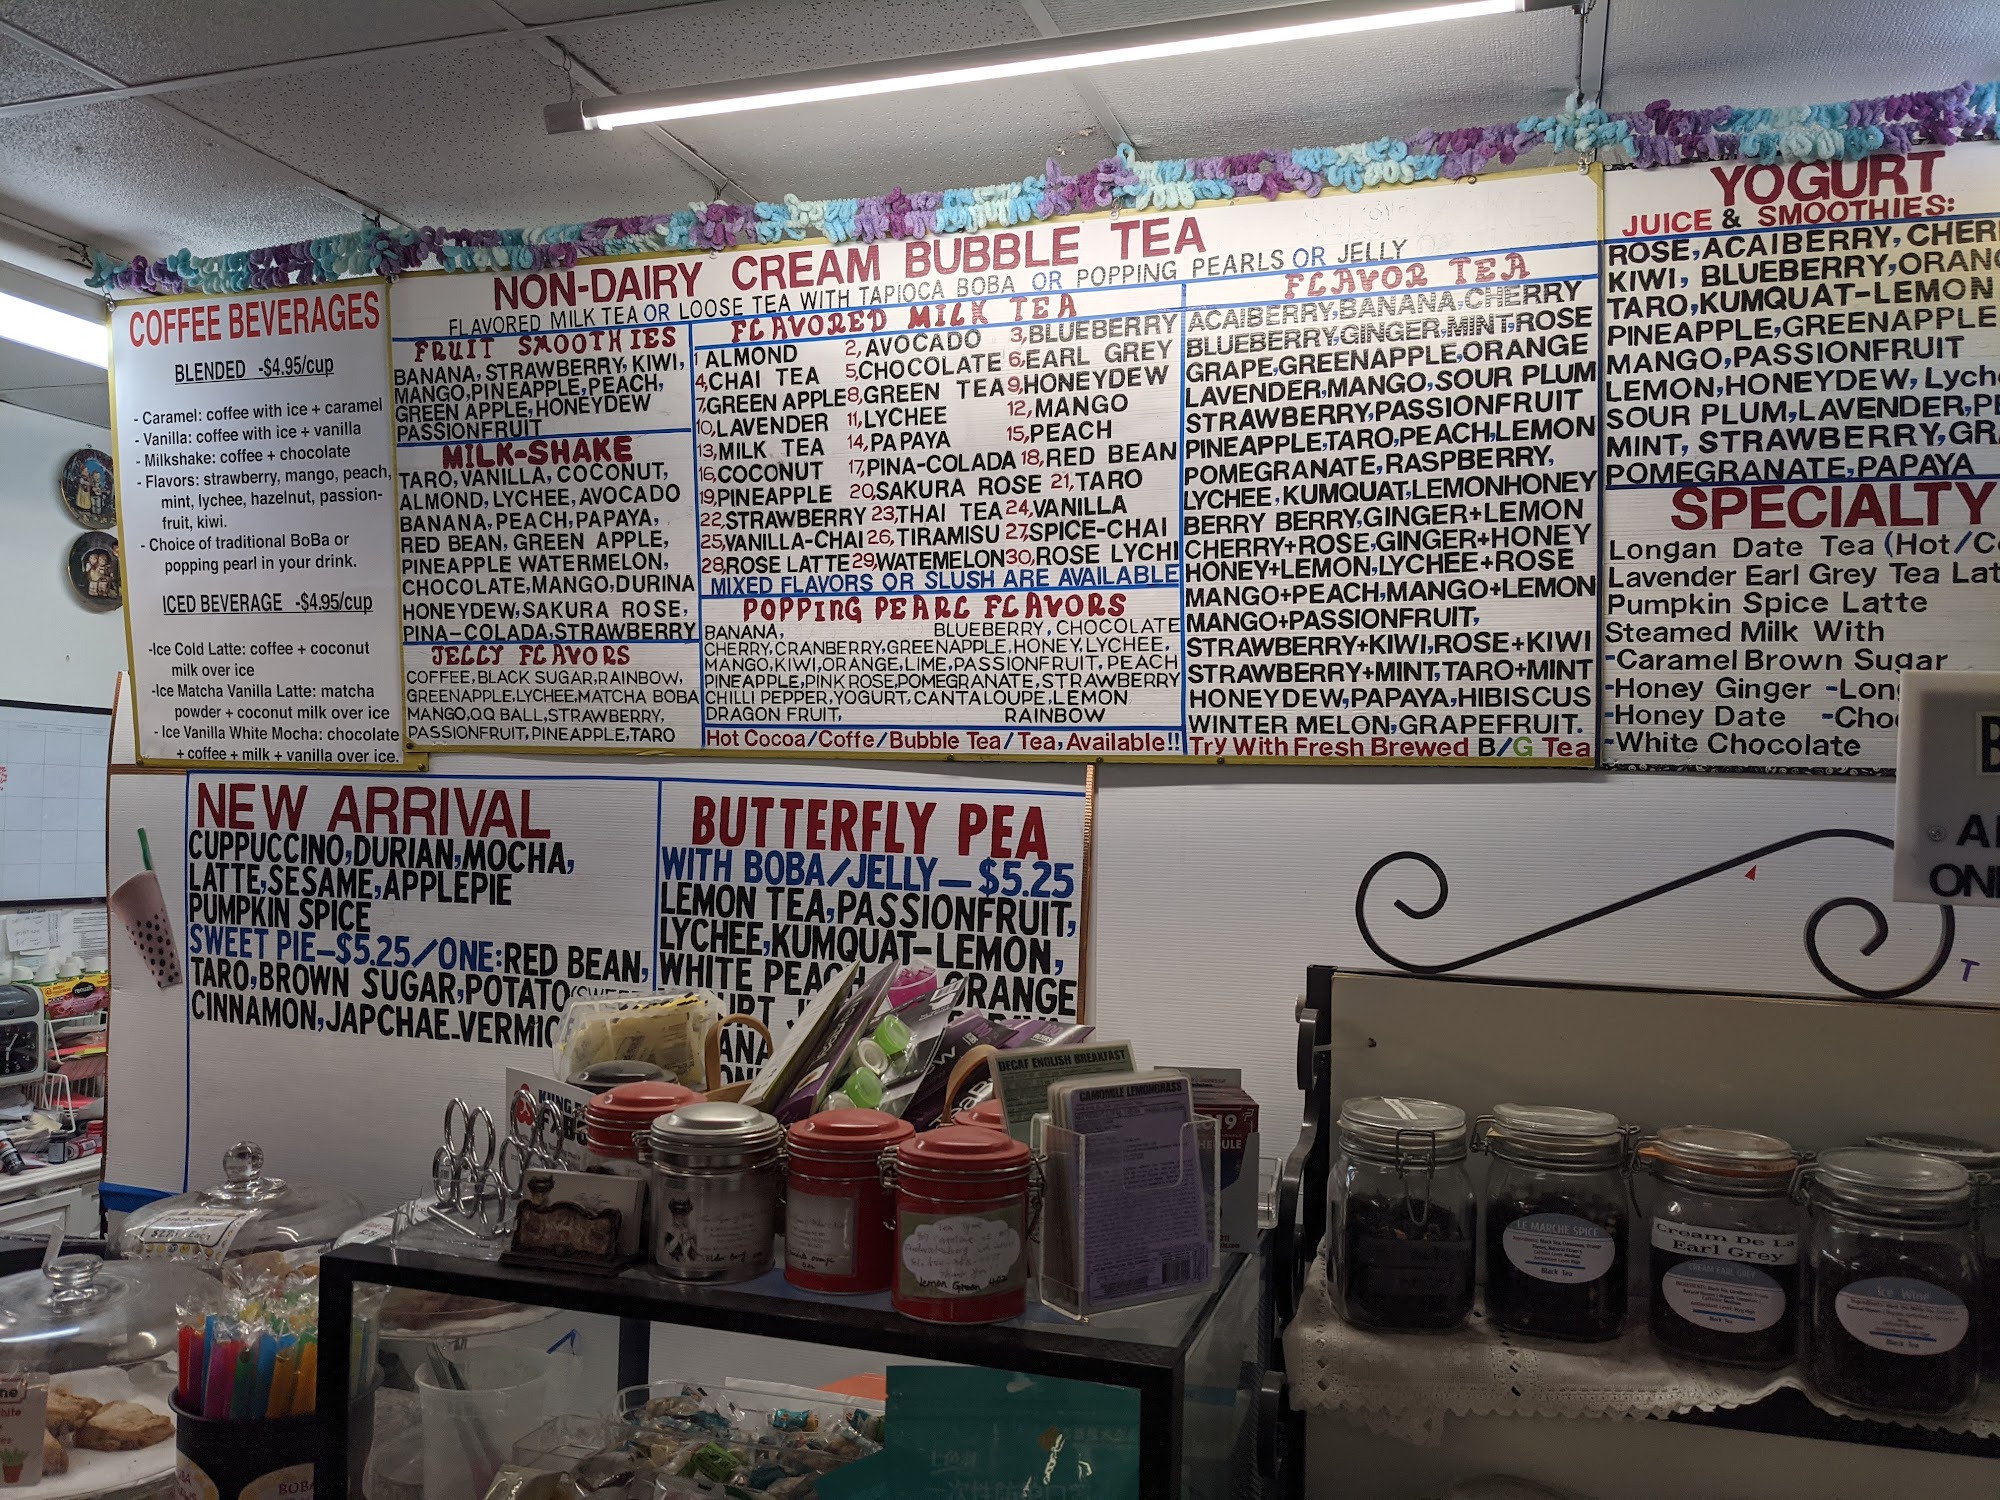 COFFEE BEVERAGES
BLENDED -$4.95/cup
- Caramel: coffee with ice + caramel
- Vanilla: coffee with ice + vanilla
- Milkshake: coffee + chocolate
- Flavors: strawberry, mango, peach,
mint, lychee, hazelnut, passion-
fruit, kiwi.
- Choice of traditional BoBa or
popping pearl in your drink.
ICED BEVERAGE -$4.95/cup
-Ice Cold Latte: coffee + coconut
milk over ice
-Ice Matcha Vanilla Latte: matcha
powder + coconut milk over ice
- Ice Vanilla White Mocha: chocolate
+ coffee + milk + vanilla over ice.
NON-DAIRY CREAM BUBBLE TEA
FLAVORED MILK TEA OR LOOSE TEA WITH TAPIOCA BOBA OR POPPING PEARLS OR JELLY
FRUIT SMOOTHIES
BANANA, STRAWBERRY, KIWI,
MANGO, PINEAPPLE, PEACH,
GREEN APPLE, HONEYDEW
PASSIONFRUIT
MILK-SHAKE
TARO, VANILLA, COCONUT,
ALMOND, LYCHEE, AVOCADO
BANANA, PEACH, PAPAYA,
RED BEAN, GREEN APPLE,
PINEAPPLE WATERMELON,
CHOCOLATE, MANGO, DURINA
HONEYDEW, SAKURA ROSE,
PINA-COLADA, STRAWBERRY
JELLY FLAVORS
COFFEE, BLACK SUGAR, RAINBOW,
GREENAPPLE, LYCHEE, MATCHA BOBA
MANGO, QQ BALL, STRAWBERRY,
PASSIONFRUIT, PINEAPPLE, TARO
FLAVORED MILK TEA
1 ALMOND 2, AVOCADO 3, BLUEBERRY
4, CHAI TEA 5, CHOCOLATE 6, EARL GREY
7, GREEN APPLE 8, GREEN TEA 9, HONEYDEW
10, LAVENDER 11, LYCHEE 12, MANGO
13, MILK TEA 14, PAPAYA 15, PEACH
16, COCONUT 17, PINA-COLADA 18, RED BEAN
19, PINEAPPLE 20, SAKURA ROSE 21, TARO
22, STRAWBERRY 23, THAI TEA 24, VANILLA
25, VANILLA-CHAI 26, TIRAMISU 27, SPICE-CHAI
28, ROSE LATTE 29, WATEMELON 30, ROSE LYCHI
MIXED FLAVORS OR SLUSH ARE AVAILABLE
POPPING PEARL FLAVORS
BANANA, BLUEBERRY, CHOCOLATE
CHERRY, CRANBERRY, GREENAPPLE, HONEY, LYCHEE,
MANGO, KIWI, ORANGE, LIME, PASSIONFRUIT, PEACH
PINEAPPLE, PINK ROSE, POMEGRANATE, STRAWBERRY
CHILLI PEPPER, YOGURT, CANTALOUPE, LEMON
DRAGON FRUIT, RAINBOW
Hot Cocoa/Coffe/Bubble Tea/Tea, Available!!
FLAVOR TEA
ACAIBERRY, BANANA, CHERRY
BLUEBERRY, GINGER, MINT, ROSE
GRAPE, GREENAPPLE, ORANGE
LAVENDER, MANGO, SOUR PLUM
STRAWBERRY, PASSIONFRUIT
PINEAPPLE, TARO, PEACH, LEMON
POMEGRANATE, RASPBERRY,
LYCHEE, KUMQUAT, LEMONHONEY
BERRY BERRY, GINGER+LEMON
CHERRY+ROSE, GINGER+HONEY
HONEY+LEMON, LYCHEE+ROSE
MANGO+PEACH, MANGO+LEMON
MANGO+PASSIONFRUIT,
STRAWBERRY+KIWI, ROSE+KIWI
STRAWBERRY+MINT, TARO+MINT
HONEYDEW, PAPAYA, HIBISCUS
WINTER MELON, GRAPEFRUIT.
Try With Fresh Brewed B/G Tea
YOGURT
JUICE & SMOOTHIES:
ROSE, ACAIBERRY, CHER
KIWI, BLUEBERRY, ORANG
TARO, KUMQUAT-LEMON
PINEAPPLE, GREENAPPLE
MANGO, PASSIONFRUIT
LEMON, HONEYDEW, Lych
SOUR PLUM, LAVENDER, PE
MINT, STRAWBERRY, GR
POMEGRANATE, PAPAYA
SPECIALTY
Longan Date Tea (Hot/Co
Lavender Earl Grey Tea Lat
Pumpkin Spice Latte
Steamed Milk With
-Caramel Brown Sugar
-Honey Ginger -Lon
-Honey Date -Cho
-White Chocolate
NEW ARRIVAL
CUPPUCCINO, DURIAN, MOCHA,
LATTE, SESAME, APPLEPIE
PUMPKIN SPICE
SWEET PIE-$5.25/ONE: RED BEAN,
TARO, BROWN SUGAR, POTATO
CINNAMON, JAPCHAE-VERMIC
BUTTERFLY PEA
WITH BOBA/JELLY-$5.25
LEMON TEA, PASSIONFRUIT,
LYCHEE, KUMQUAT-LEMON,
WHITE PEACH ORANGE
DECAF ENGLISH BREAKFAST
CAMOMILE LEMONGRASS
Lemon Green
LE MARCHE SPICE
Black Tea
Cream De La
Earl Grey
CREAM EARL GREY
Black Tea
Ice Wine
Black Tea